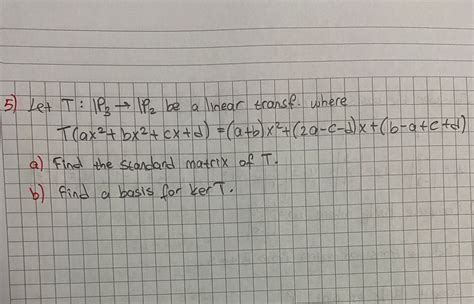 5) Let T: P₃ → P₂ be a linear transf. where
T(ax²+ bx²+ cx+d) = (a+b)x²+(2a-c-d)x+(b-a+c+d)
a) Find the standard matrix of T.
b) find a basis for ker T.